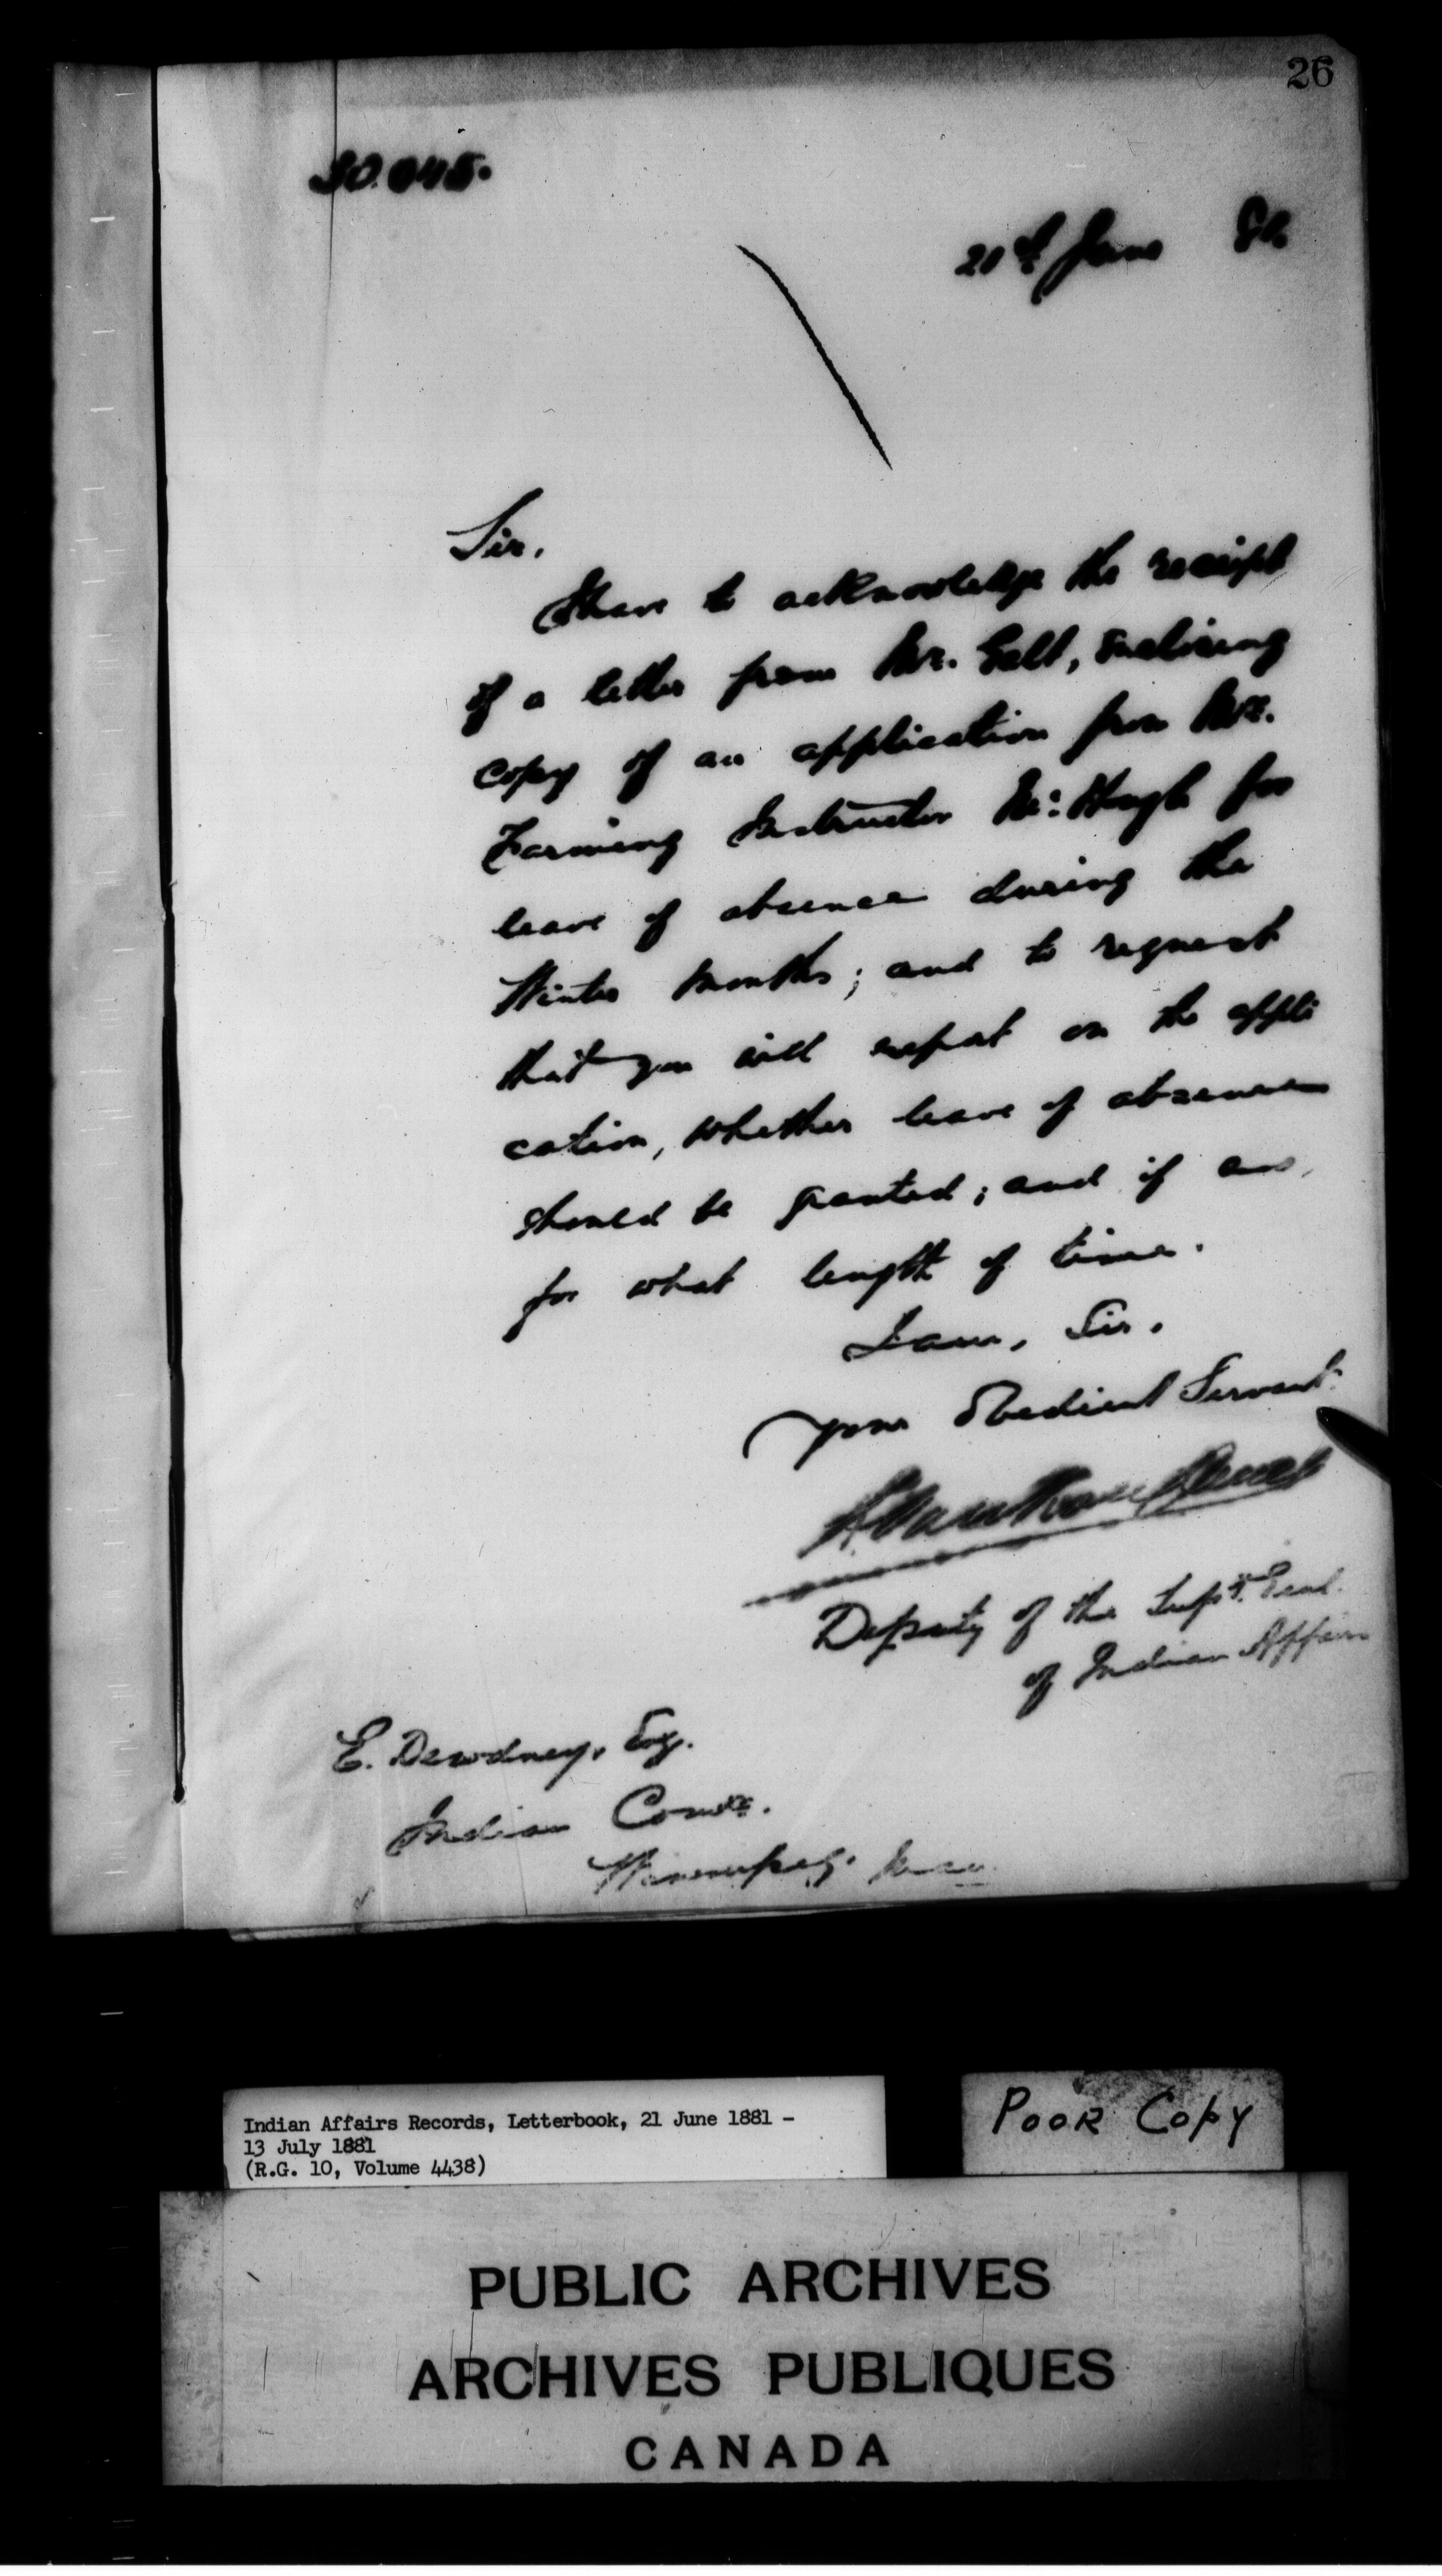 26
30.045.
21st June 81.
Sir,
I have to acknowledge the receipt
of a letter from Mr. Galt, enclosing
copy of an application from Mr.
Farming Instructor Mc:Hugh for
leave of absence during the
Winter months; and to request
that you will report on the appli
cation, whether leave of absence
should be granted; and if so,
for what length of time.
I am, Sir,
Your Obedient Servant.
Deputy of the Supt. Genl.
of Indian Affairs
E. Dewdney, Esq.
Indian Comr.
Winnipeg.
Indian Affairs Records, Letterbook, 21 June 1881 -
13 July 1881
(R.G. 10, Volume 4438)
POOR COPY
PUBLIC ARCHIVES
ARCHIVES PUBLIQUES
CANADA